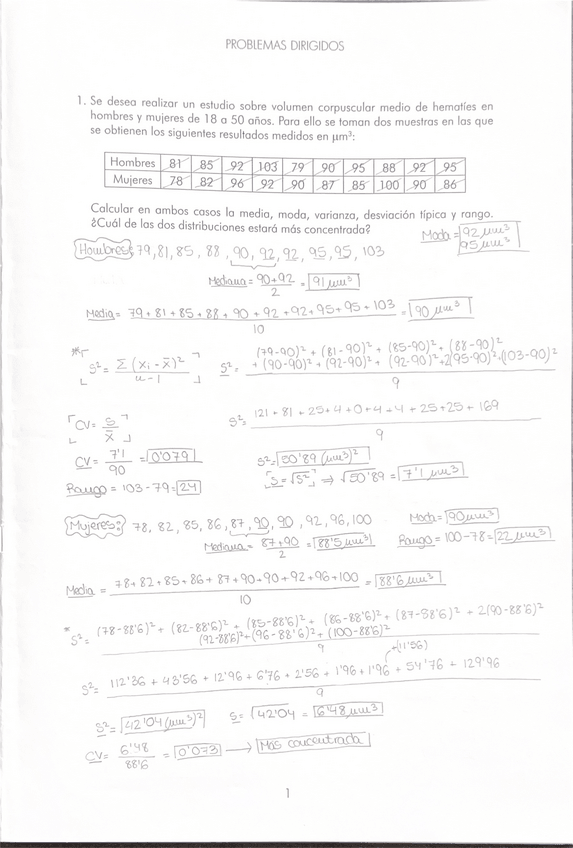 PROBLEMAS DIRIGIDOS
1. Se desea realizar un estudio sobre volumen corpuscular medio de hematíes en
hombres y mujeres de 18 a 50 años. Para ello se toman dos muestras en las que
se obtienen los siguientes resultados medidos en μm³:
Hombres 81 85 92 103 79 90 95 88 92 95
Mujeres 78 82 96 92 90 87 85 100 90 86
Calcular en ambos casos la media, moda, varianza, desviación típica y rango.
¿Cuál de las dos distribuciones estará más concentrada?
Moda = 92 μm³
95 μm³
Hombres: 79, 81, 85, 88, 90, 92, 92, 95, 95, 103
Mediana = 90+92 / 2 = 91 μm³
Media = 79 + 81 + 85 + 88 + 90 + 92 + 92 + 95 + 95 + 103 / 10 = 90 μm³
* S² = Σ (xi - x̄)² / n-1
S² = (79-90)² + (81-90)² + (85-90)² + (88-90)²
+ (90-90)² + (92-90)² + (92-90)² + 2(95-90)² + (103-90)² / 9
CV = S / x̄
S² = 121 + 81 + 25 + 4 + 0 + 4 + 4 + 25 + 25 + 169 / 9
CV = 7'1 / 90 = 0'079
S² = 50'89 (μm³)²
Rango = 103 - 79 = 24
S = √S² ⇒ √50'89 = 7'1 μm³
Mujeres: 78, 82, 85, 86, 87, 90, 90, 92, 96, 100
Moda = 90 μm³
Mediana = 87+90 / 2 = 88'5 μm³
Rango = 100 - 78 = 22 μm³
Media = 78 + 82 + 85 + 86 + 87 + 90 + 90 + 92 + 96 + 100 / 10 = 88'6 μm³
* S² = (78-88'6)² + (82-88'6)² + (85-88'6)² + (86-88'6)² + (87-88'6)² + 2(90-88'6)²
(92-88'6)² + (96-88'6)² + (100-88'6)² / 9
+(11'56)
S² = 112'36 + 43'56 + 12'96 + 6'76 + 2'56 + 1'96 + 1'96 + 54'76 + 129'96 / 9
S² = 42'04 (μm³)²
S = √42'04 = 6'48 μm³
CV = 6'48 / 88'6 = 0'073 → Más concentrada
1